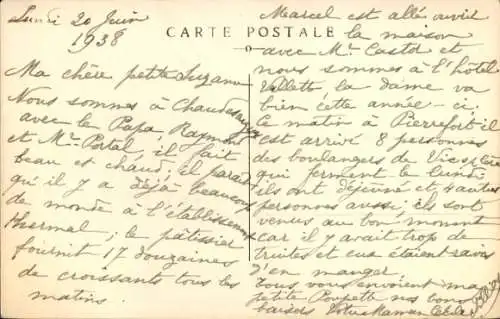 Lundi 20 Juin
1938
CARTE POSTALE
Ma chère petite Suzanne
Nous sommes à Chaudesaigues
avec le Papa, Raymond
et Mr Portal, il fait
beau et chaud, il paraît
qu'il y a déjà beaucoup
de monde à l'établissement
thermal; le pâtissier
fournit 17 douzaines
de croissants tous les
matins.
Marcel est allé ouvrir
la maison
avec Mr Castor et
nous sommes à l'hôtel
Vallette, la dame va
bien cette année-ci.
Ce matin à Pierrefort il
est arrivé 8 personnes
des boulangers de Vic s/ Cère
qui ferment le lundi
ils ont déjeuné et 4 autres
personnes aussi; ils sont
venus au bon moment
car il y avait trop de
truites et eux étaient ravis
d'en manger.
Tous vous envoient ma
petite Poupette nos bons
baisers Votre Maman